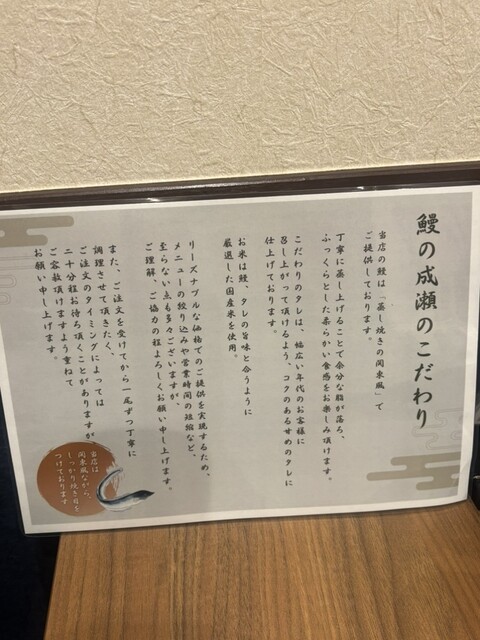 鰻の成瀬のこだわり
当店の鰻は「蒸し焼きの関東風」で
ご提供しております。
丁寧に蒸し上げることで余分な脂が落ち、
ふっくらとした柔らかい食感をお楽しみ頂けます。
こだわりのタレは、幅広い年代のお客様に
召し上がって頂けるよう、コクのあるせめのタレに
仕上げております。
お米は鰻、タレの旨味と合うように
厳選した国産米を使用。
リーズナブルな価格でのご提供を実現するため、
メニューの絞り込みや営業時間の短縮など、
至らない点も多々ございますが、
ご理解、ご協力の程よろしくお願い申し上げます。
また、ご注文を受けてから一尾ずつ丁寧に
調理させて頂きたく、
ご注文のタイミングによっては
二十分程お待ち頂くことがありますが、
ご容赦頂けますよう重ねて
お願い申し上げます。
当店は
関東風ながら、
しっかり焼き目を
つけております